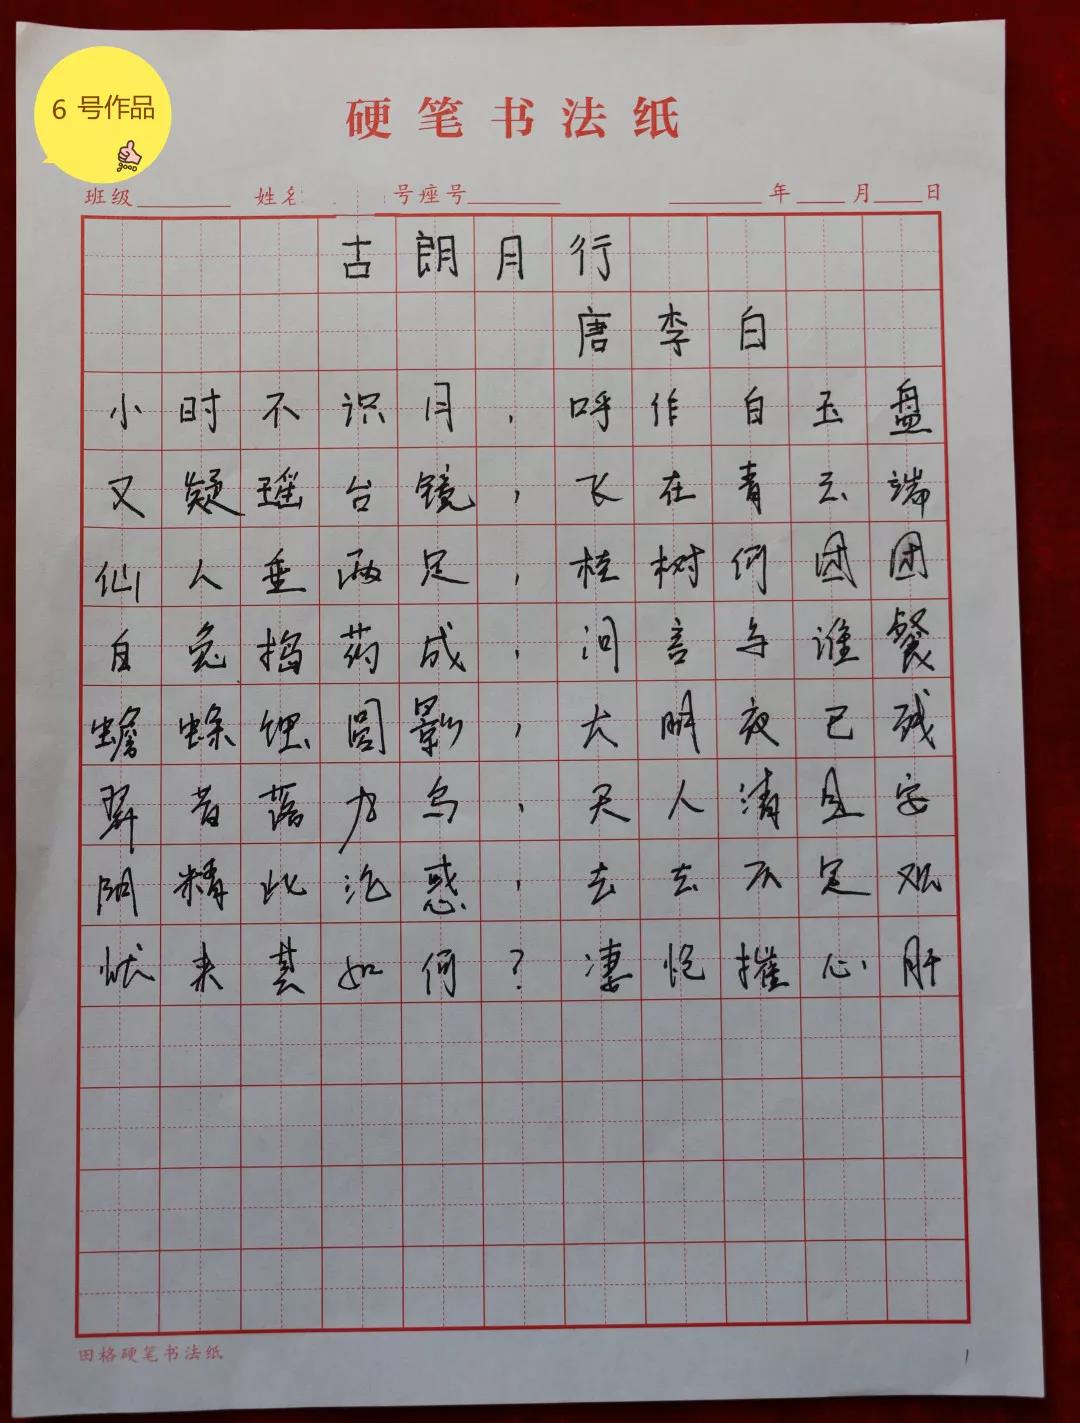 6 号作品
good
硬笔书法纸
班级 姓名 号座号 年 月 日
古朗月行
唐李白
小时不识月，呼作白玉盘
又疑瑶台镜，飞在青云端
仙人垂两足，桂树何团团
白兔捣药成，问言与谁餐
蟾蜍蚀圆影，大明夜已残
羿昔落九乌，天人清且安
阴精此沦惑，去去不足观
忧来其如何？凄怆摧心肝
田格硬笔书法纸
1